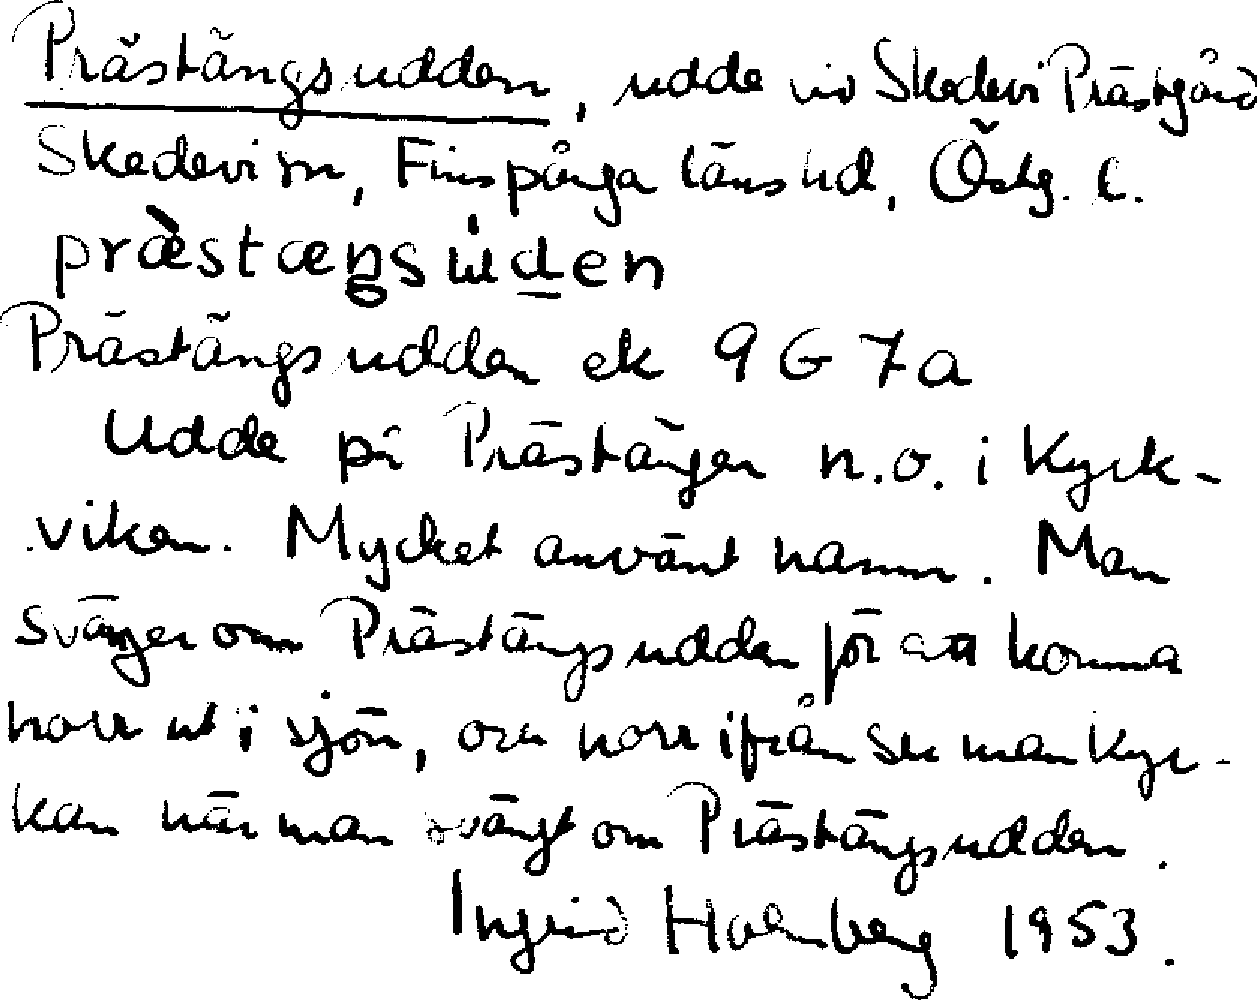 Prästängsudden, udde vid Skedevi Prästgård
Skedevi sn, Finspånga läns hd, Östg. l.
præ̀stæŋsùden
Prästängsudden ek 9 G 7a
Udde på Prästängen n.o. i Kyrk-
viken. Mycket använt namn. Man
svänger om Prästängsudden för att komma
norr ut i sjön, och norr ifrån ser man kyr-
kan när man svängt om Prästängsudden.
Ingrid Holmberg 1953.